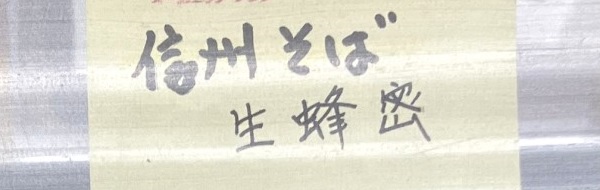 信州そば
生蜂密